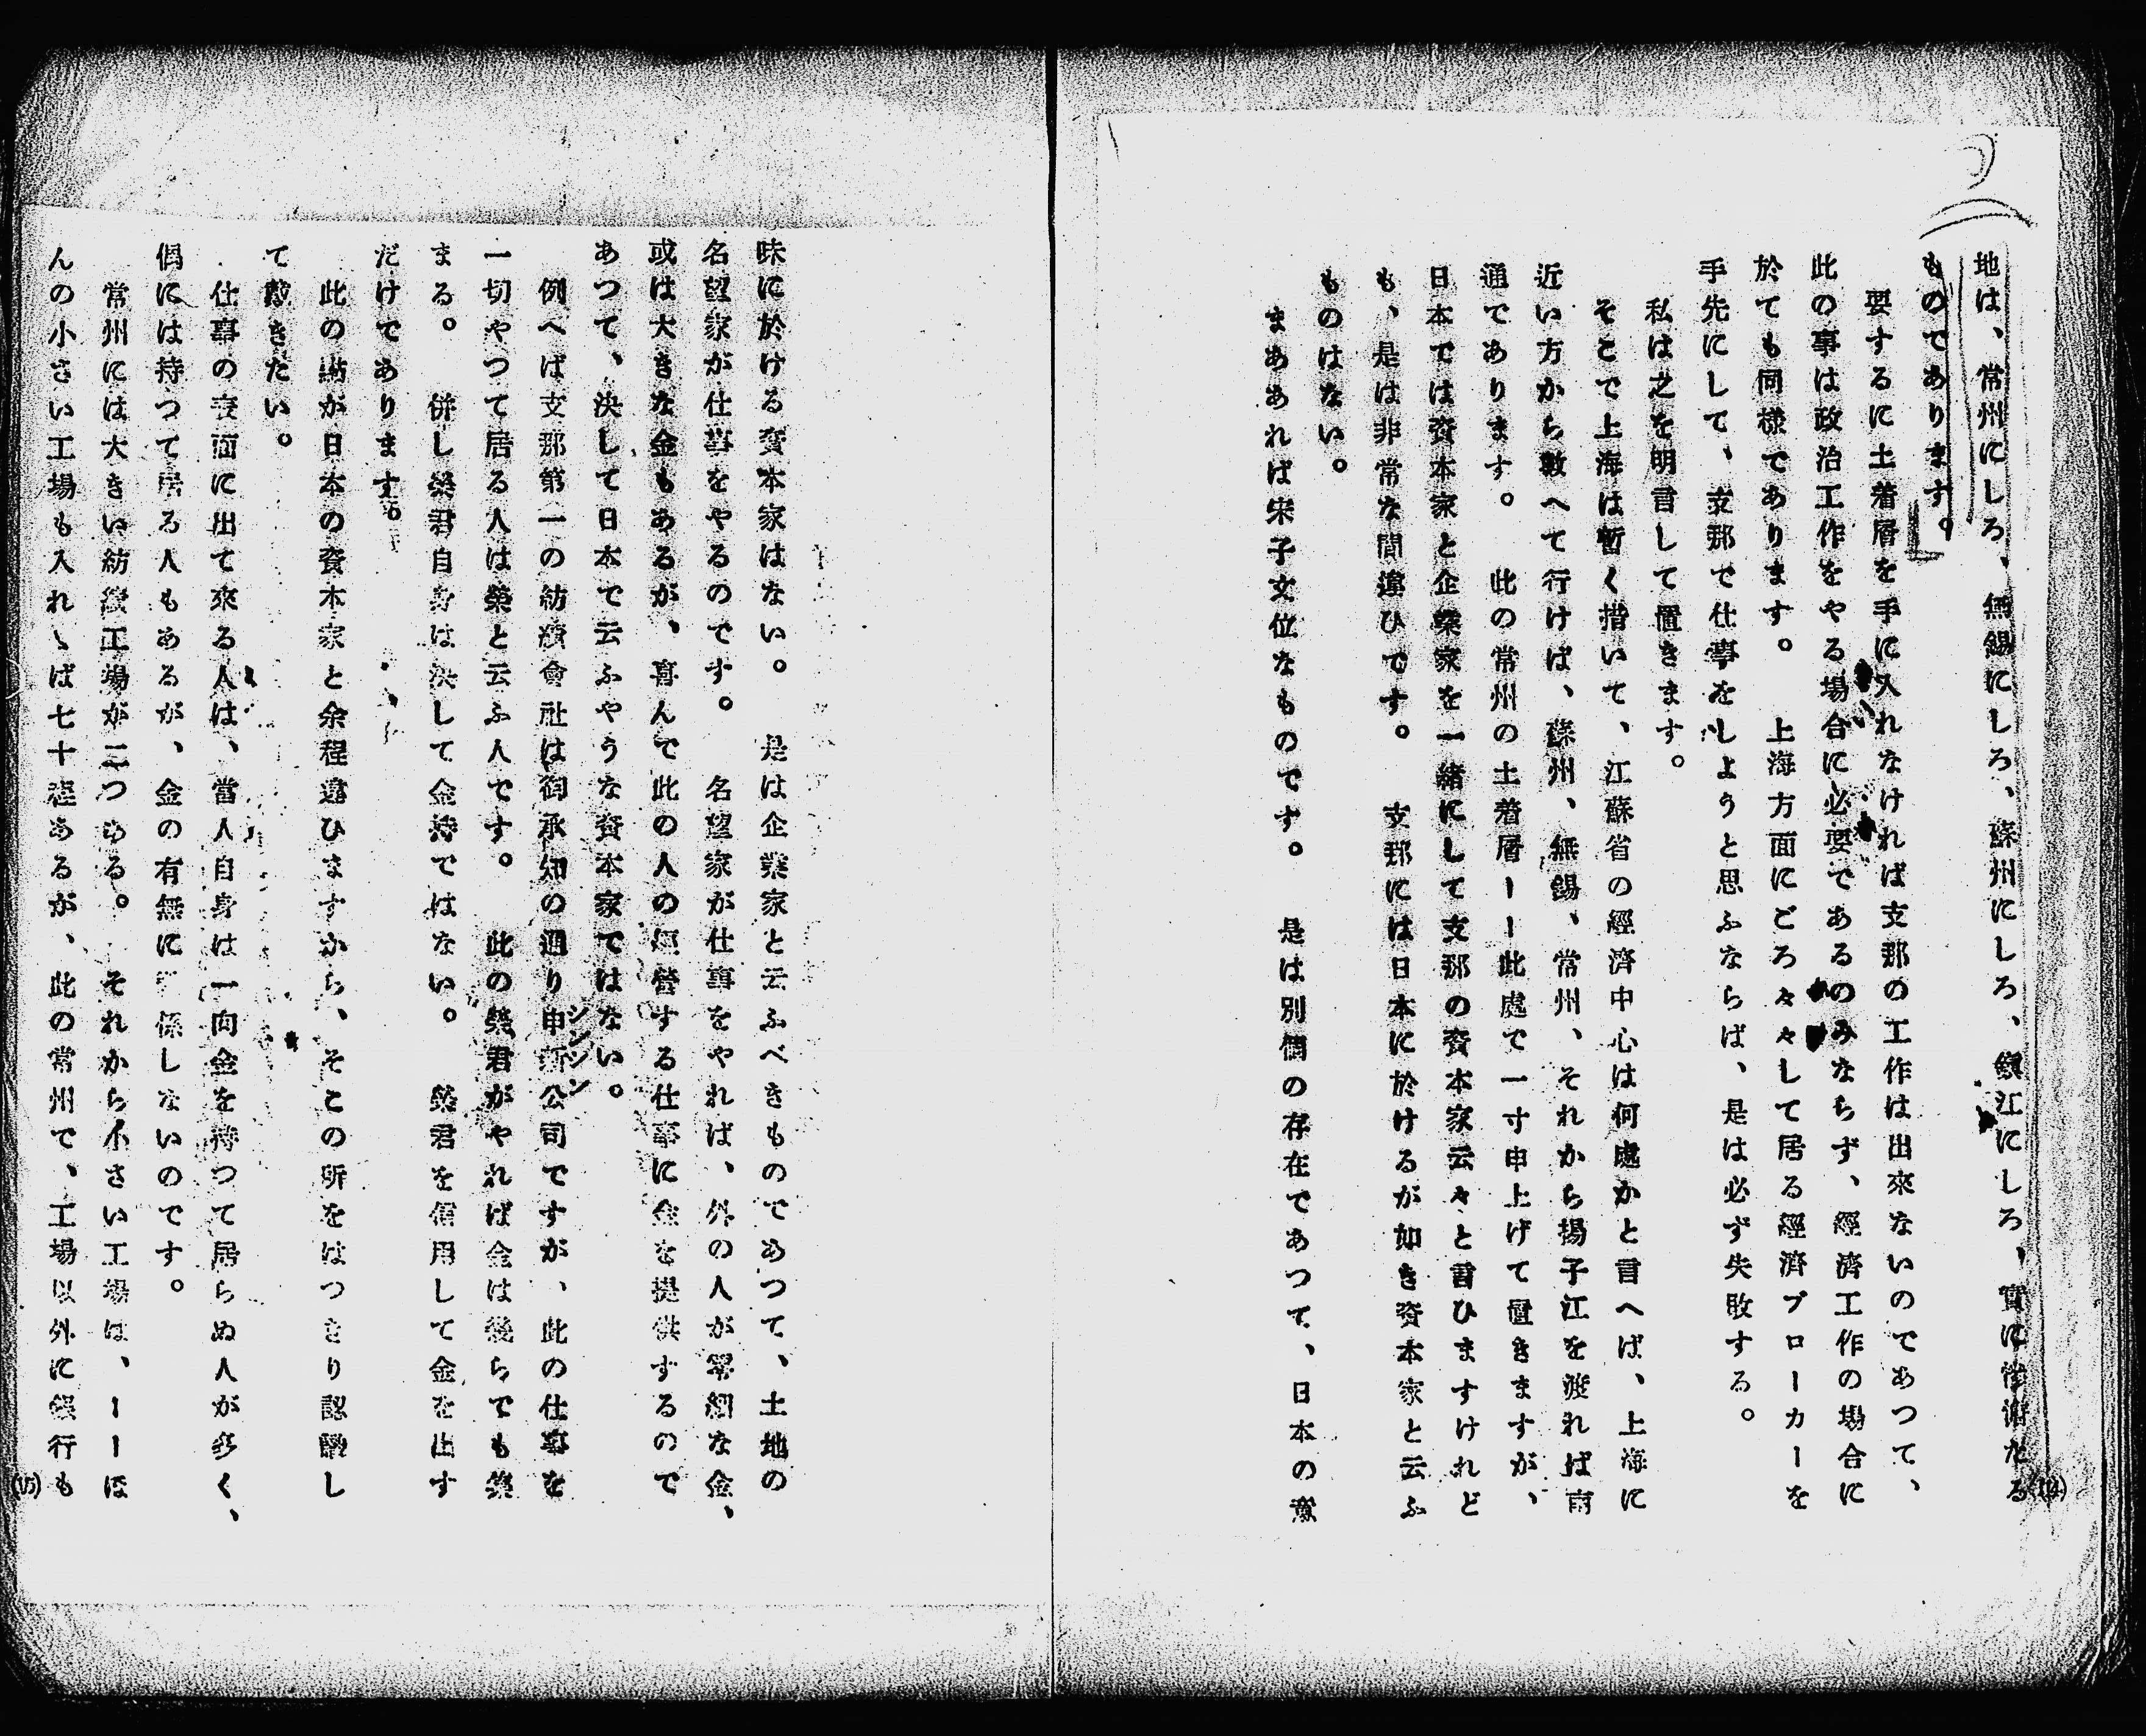 (14)
地は、常州にしろ、無錫にしろ、蘇州にしろ、鎭江にしろ、實に
ものであります。
要するに土着層を手に入れなければ支那の工作は出來ないのであつて、
此の事は政治工作をやる場合に必要であるのみならず、經濟工作の場合に
於ても同樣であります。　上海方面にごろ々々して居る經濟ブローカーを
手先にして、支那で仕事をしようと思ふならば、是は必ず失敗する。
私は之を明言して置きます。
そこで上海は暫く措いて、江蘇省の經濟中心は何處かと言へば、上海に
近い方から數へて行けば、蘇州、無錫、常州、それから揚子江を渡れば南
通であります。　此の常州の土着層ーー此處で一寸申上げて置きますが、
日本では資本家と企業家を一緒にして支那の資本家云々と言ひますけれど
も、是は非常な間違ひです。　支那には日本に於けるが如き資本家と云ふ
ものはない。
まああれば宋子文位なものです。　是は別個の存在であつて、日本の意
味に於ける資本家はない。　是は企業家と云ふべきものであつて、土地の
名望家が仕事をやるのです。　名望家が仕事をやれば、外の人が零細な金、
或は大きな金もあるが、喜んで此の人の經營する仕事に金を提供するので
あつて、決して日本で云ふやうな資本家ではない。
例へば支那第一の紡績會社は御承知の通り申新公司ですが、此の仕事を
シンシン
一切やつて居る人は榮と云ふ人です。　此の榮君がやれば金は幾らでも集
まる。　併し榮君自身は決して金持ではない。　榮君を信用して金を出す
だけであります。
此の點が日本の資本家と余程違ひますから、そこの所をはつきり認識し
て戴きたい。
仕事の表面に出て來る人は、當人自身は一向金を持つて居らぬ人が多く、
偶には持つて居る人もあるが、金の有無に關係しないのです。
常州には大きい紡績工場が二つある。　それから小さい工場は、ーーほ
んの小さい工場も入れゝば七十程あるが、此の常州で、工場以外に銀行も
(15)